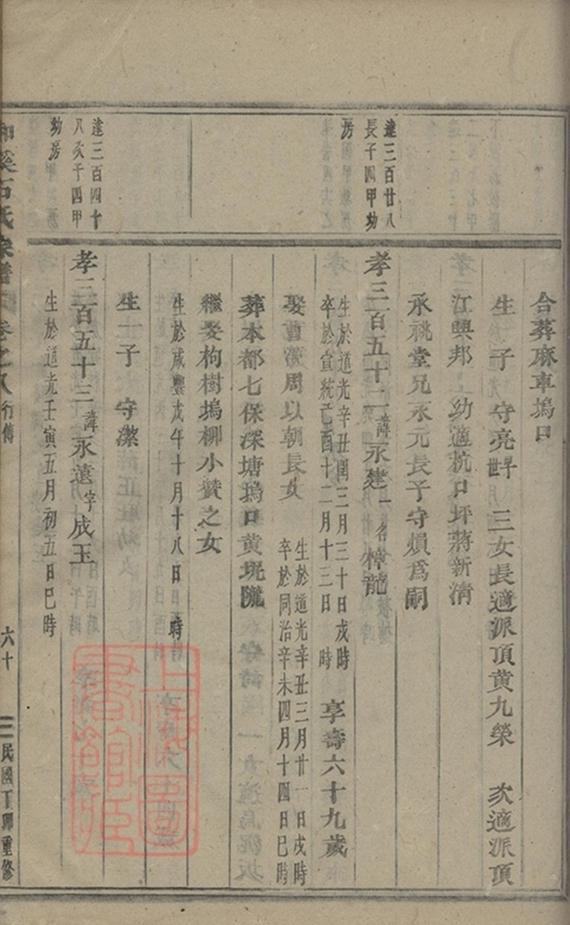 合葬麻車塢口
生一子 守亮早世 三女長適派頂黃九榮 次適派頂
江興邦 幼適杭口坪蔣新清
承祧堂兄永元長子守熉爲嗣
達三百廿八
長子四甲幼
房
孝三百五十二諱永建一名樟龍
生於道光辛丑閏三月三十日戌時
卒於宣統己酉十二月十三日 時 享壽六十九歲
娶曹 周以朝長女 生於道光辛丑三月廿一日戌時
卒於同治辛未四月十四日巳時
葬本都七保深塘塢口黃 隴
繼娶枸樹塢柳小贊之女
生於咸豐戊午十月十八日 時
生一子 守潔
達三百四十
八次子四甲
幼房
孝三百五十三諱永遠字成玉
生於道光壬寅五月初五日巳時
石氏宗譜 卷之八 行傳 六十 民國丁卯重修
上海圖書館藏